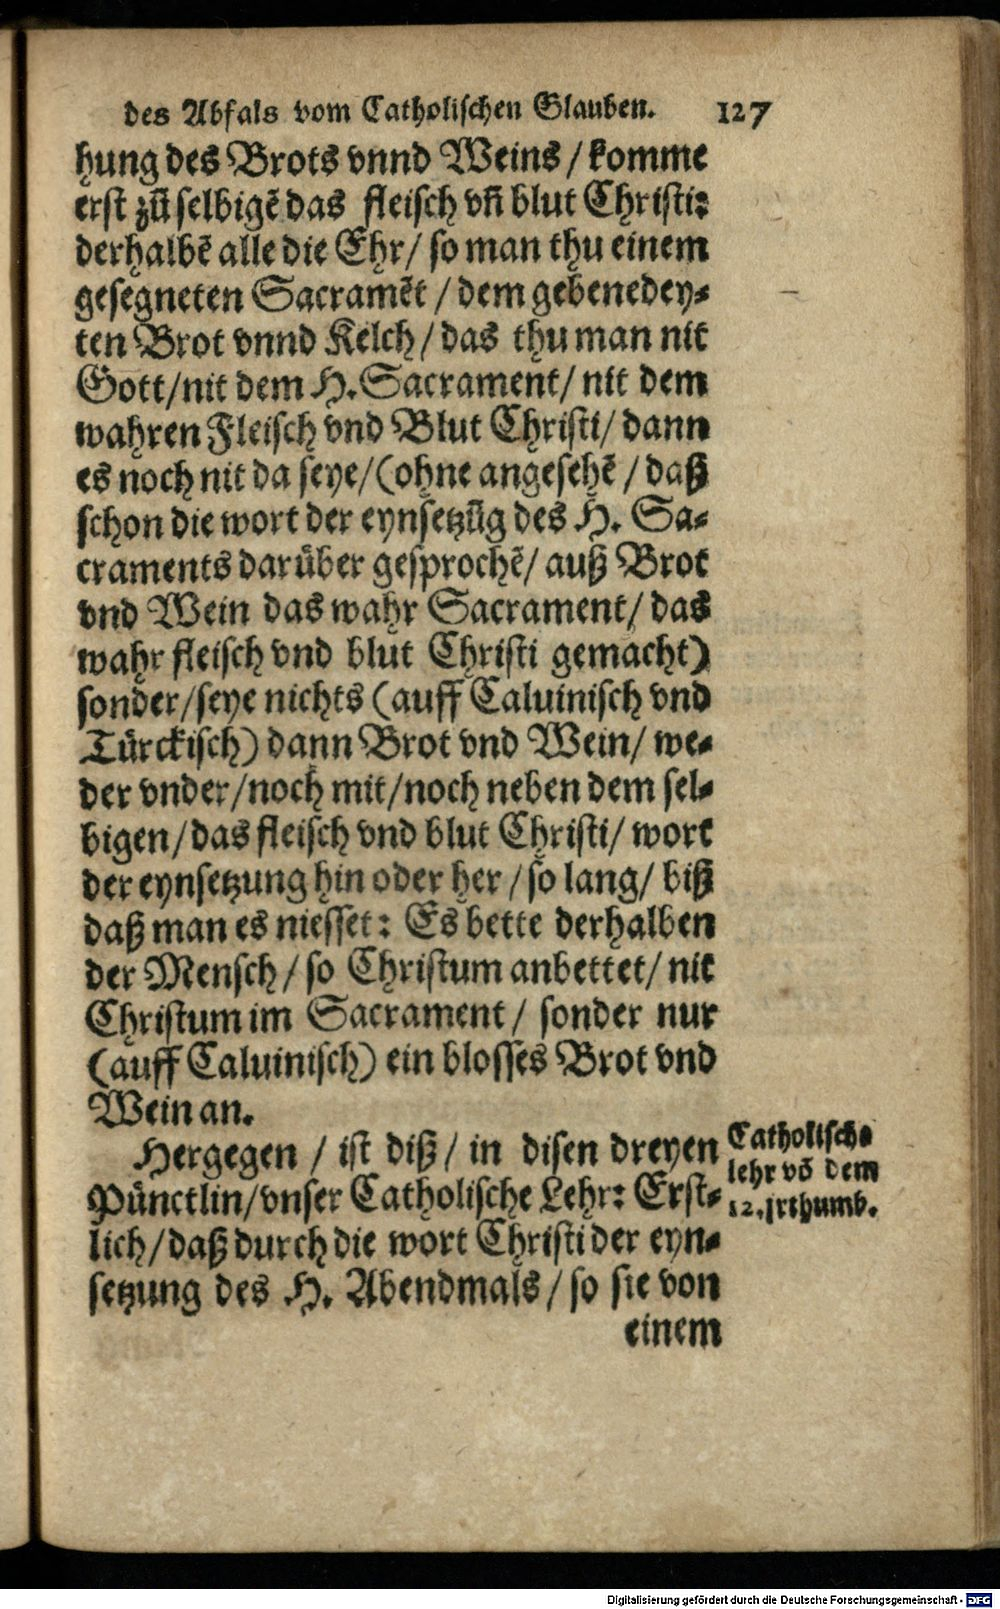 des Abfals vom Catholischen Glauben. 127
hung des Brots vnnd Weins / komme
erst zů selbigẽ das fleisch vñ blut Christi:
derhalbẽ alle die Ehr / so man thu einem
gesegneten Sacramẽt / dem gebenedey-
ten Brot vnnd Kelch / das thu man nit
Gott / nit dem H. Sacrament / nit dem
wahren Fleisch vnd Blut Christi / dann
es noch nit da seye / (ohne angesehẽ / daß
schon die wort der eynsetzũg des H. Sa-
craments darüber gesprochẽ / auß Brot
vnd Wein das wahr Sacrament / das
wahr fleisch vnd blut Christi gemacht)
sonder / seye nichts (auff Caluinisch vnd
Türckisch) dann Brot vnd Wein / we-
der vnder / noch mit / noch neben dem sel-
bigen / das fleisch vnd blut Christi / wort
der eynsetzung hin oder her / so lang / biß
daß man es niesset: Es bette derhalben
der Mensch / so Christum anbettet / nit
Christum im Sacrament / sonder nur
(auff Caluinisch) ein blosses Brot vnd
Wein an.
Hergegen / ist diß / in disen dreyen
Pünctlin / vnser Catholische Lehr: Erst-
lich / daß durch die wort Christi der eyn-
setzung des H. Abendmals / so sie von
einem
Catholische
lehr võ dem
12. jrthumb.
Digitalisierung gefördert durch die Deutsche Forschungsgemeinschaft - DFG